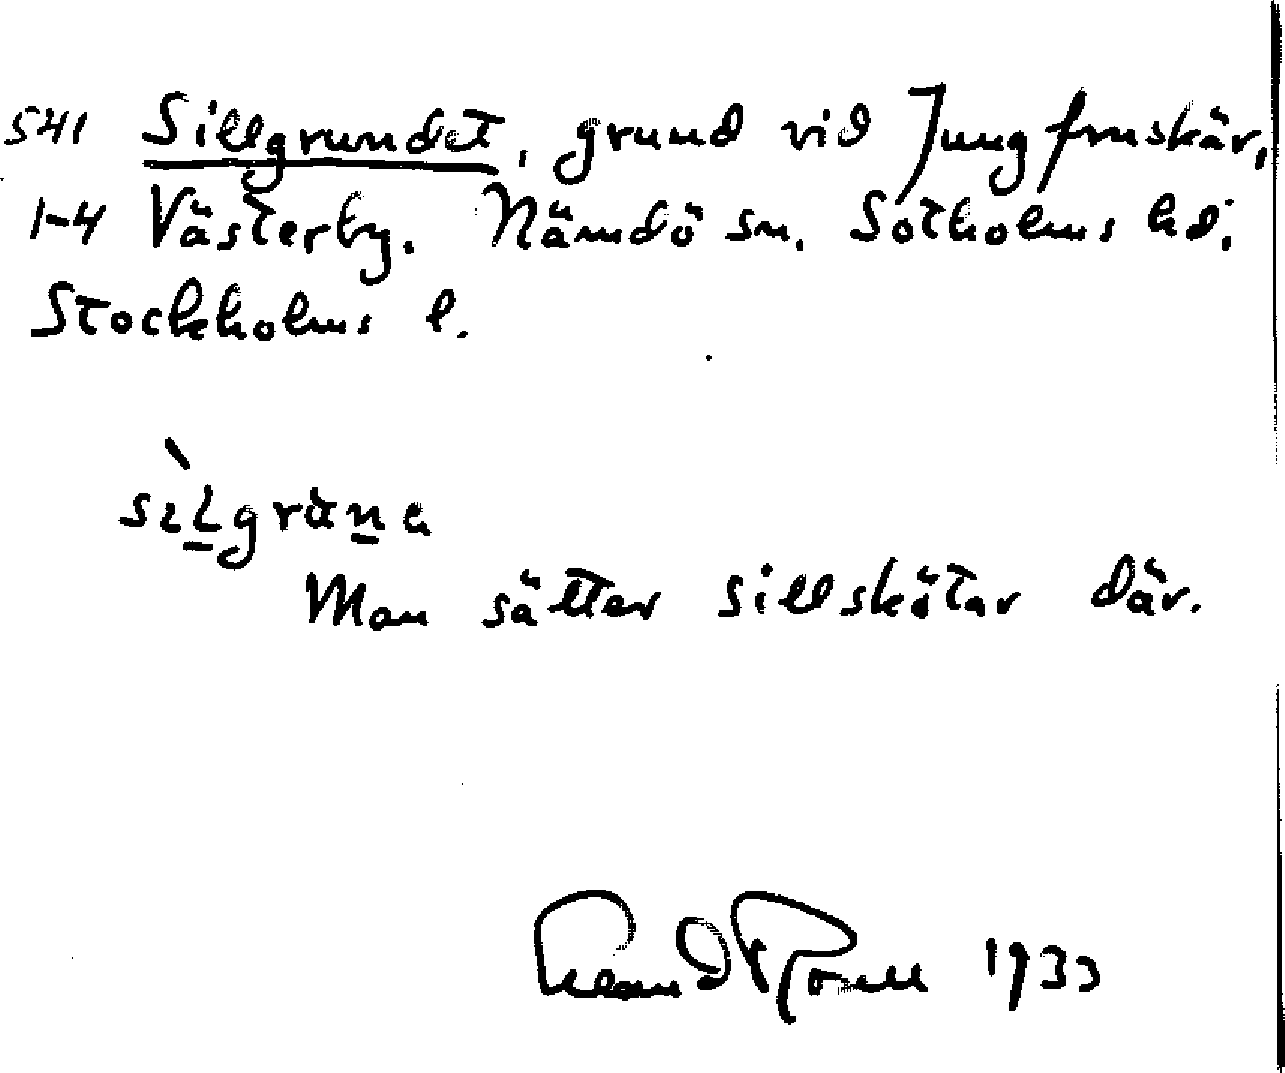 541 Sillgrundet, grund vid Jungfruskär,
1-4 Västerby. Nämdö sn. Sotholms hd.
Stockholms l.
Man sätter sillskötar där.
1933